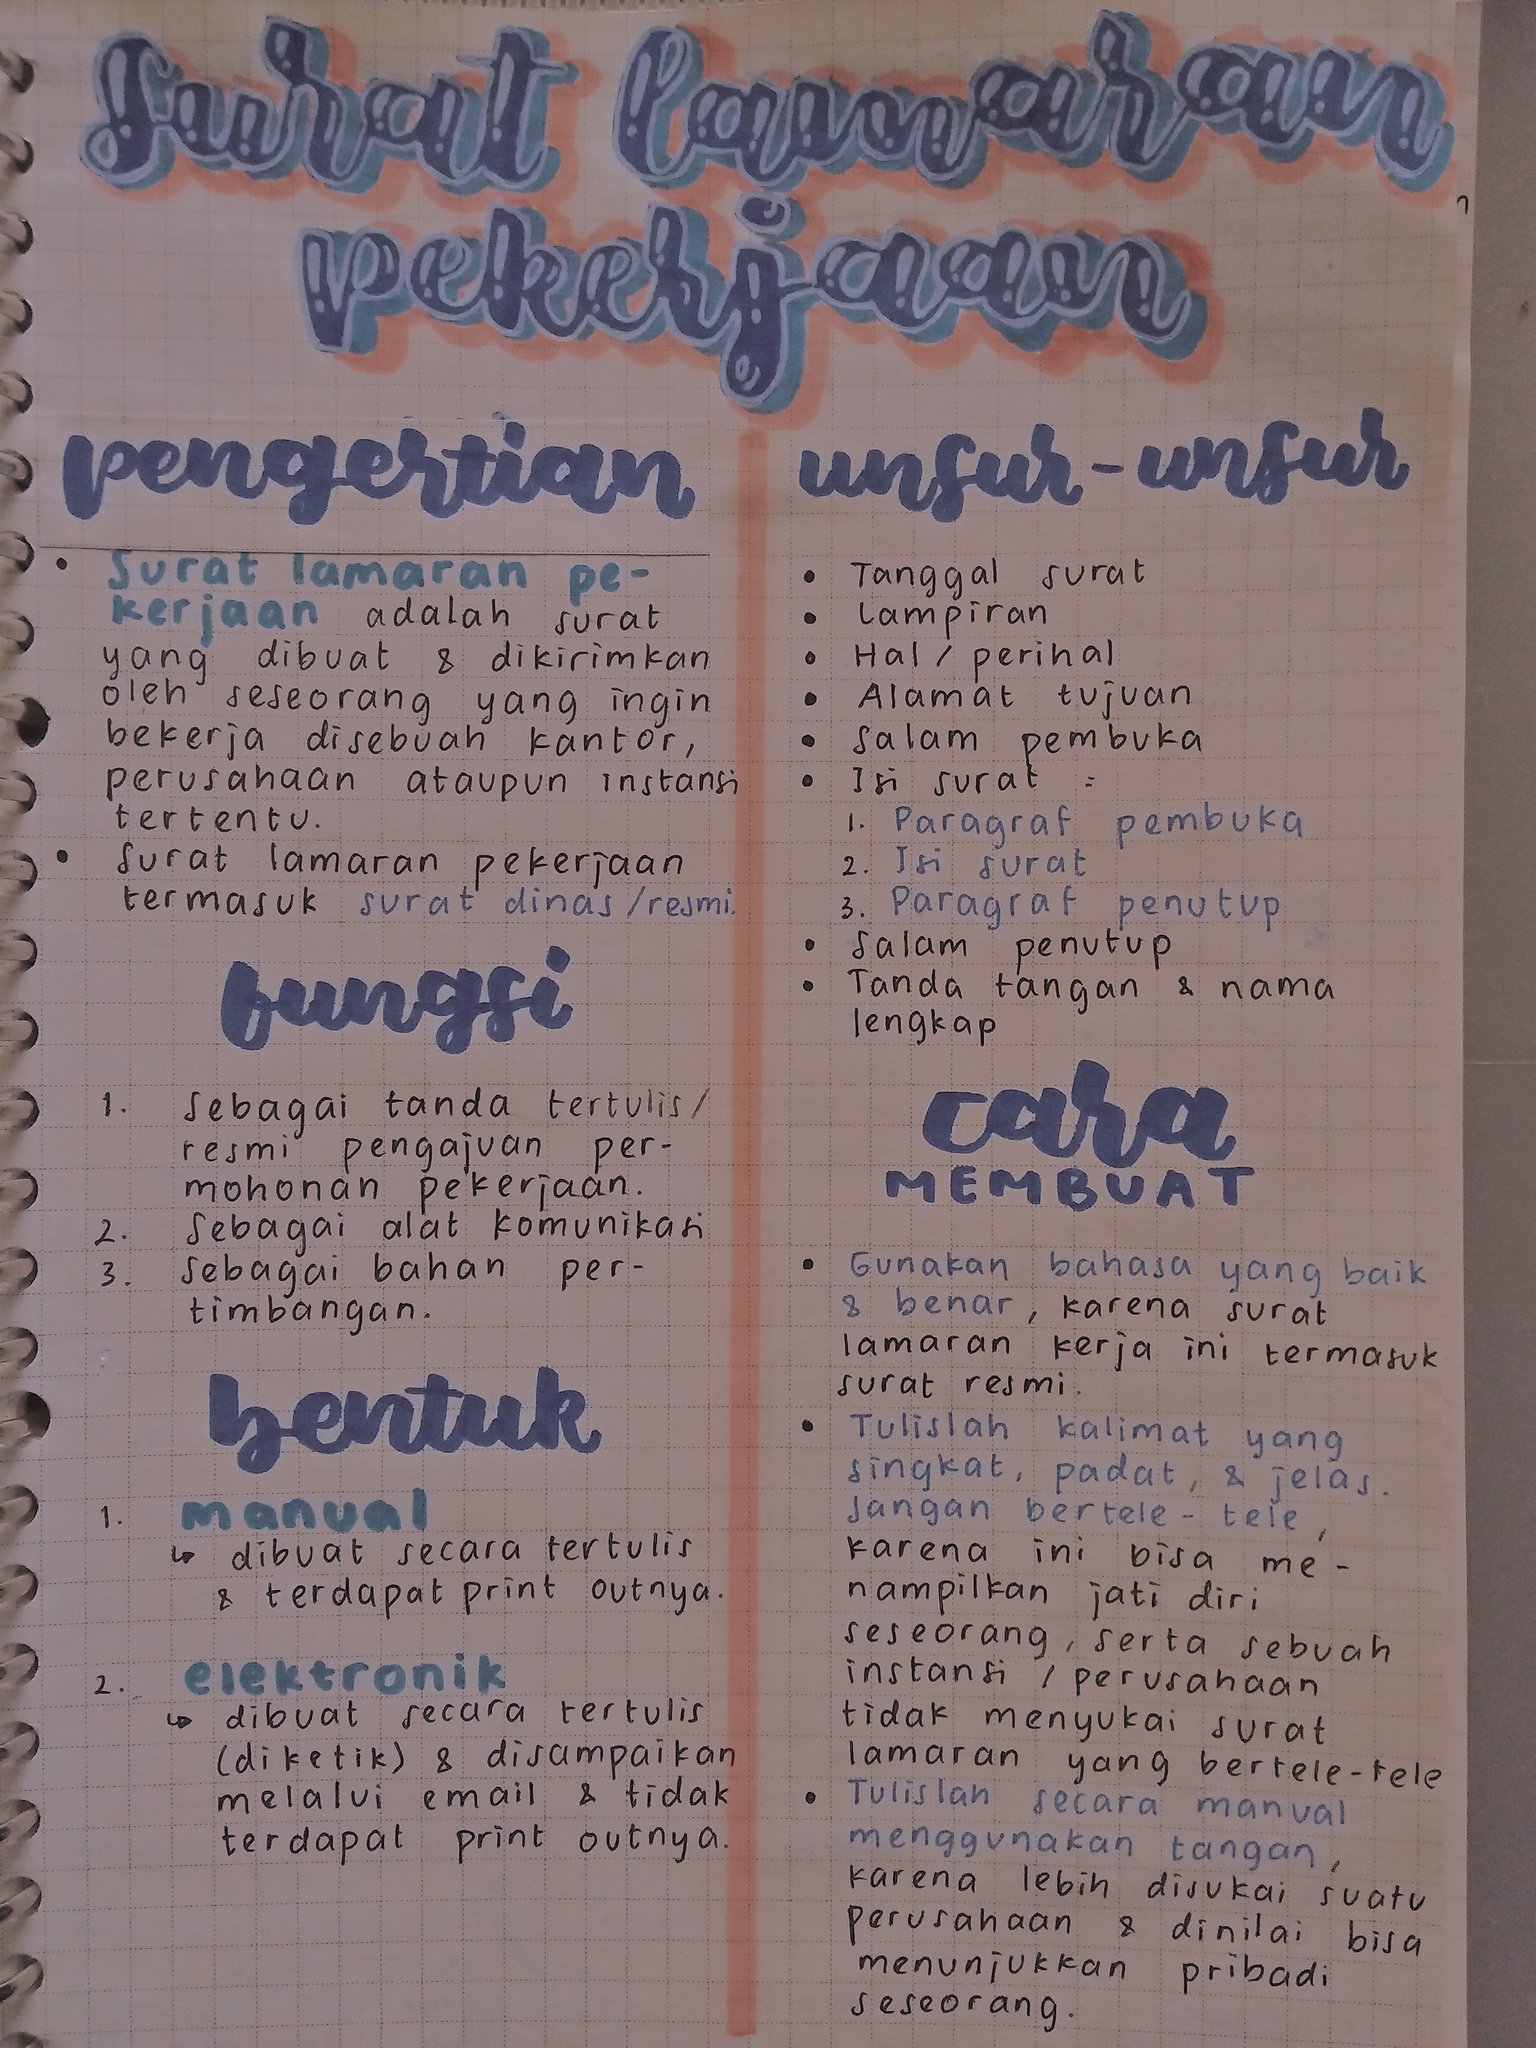 surat lamaran
pekerjaan
pengertian
• Surat lamaran pe-
kerjaan adalah surat
yang dibuat & dikirimkan
oleh seseorang yang ingin
bekerja disebuah kantor,
perusahaan ataupun instansi
tertentu.
• Surat lamaran pekerjaan
termasuk surat dinas/resmi.
fungsi
1. Sebagai tanda tertulis/
resmi pengajuan per-
mohonan pekerjaan.
2. Sebagai alat komunikasi
3. Sebagai bahan per-
timbangan.
bentuk
1. manual
↳ dibuat secara tertulis
& terdapat print outnya.
2. elektronik
↳ dibuat secara tertulis
(diketik) & disampaikan
melalui email & tidak
terdapat print outnya.
unsur-unsur
• Tanggal surat
• Lampiran
• Hal / perihal
• Alamat tujuan
• Salam pembuka
• Isi surat :
1. Paragraf pembuka
2. Isi surat
3. Paragraf penutup
• Salam penutup
• Tanda tangan & nama
lengkap
cara
MEMBUAT
• Gunakan bahasa yang baik
& benar, karena surat
lamaran kerja ini termasuk
surat resmi.
• Tulislah kalimat yang
singkat, padat, & jelas.
Jangan bertele-tele,
karena ini bisa me-
nampilkan jati diri
seseorang, serta sebuah
instansi / perusahaan
tidak menyukai surat
lamaran yang bertele-tele
• Tulislah secara manual
menggunakan tangan,
karena lebih disukai suatu
perusahaan & dinilai bisa
menunjukkan pribadi
seseorang.